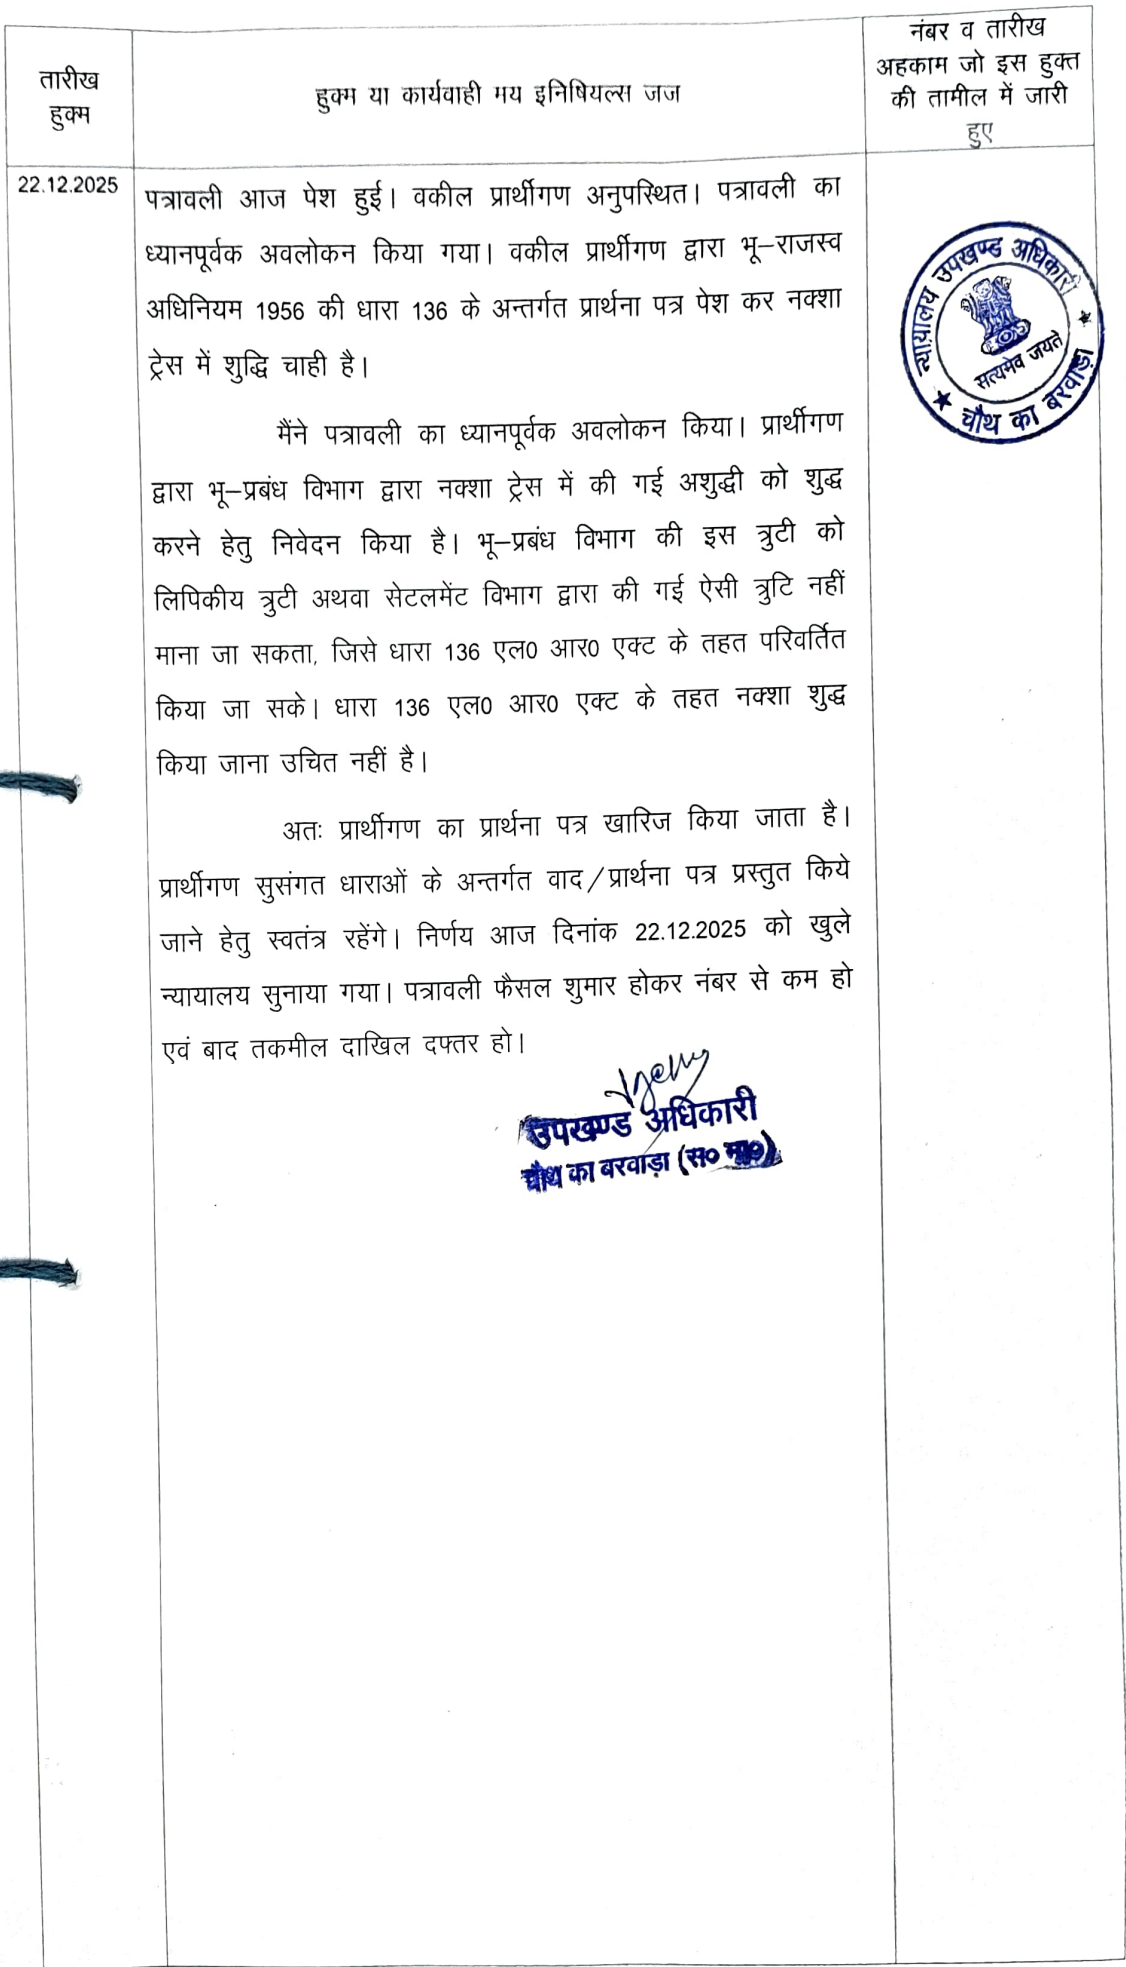 तारीख
हुक्म
हुक्म या कार्यवाही मय इनिषियल्स जज
नंबर व तारीख
अहकाम जो इस हुक्त
की तामील में जारी
हुए
22.12.2025
पत्रावली आज पेश हुई। वकील प्रार्थीगण अनुपस्थित। पत्रावली का
ध्यानपूर्वक अवलोकन किया गया। वकील प्रार्थीगण द्वारा भू–राजस्व
अधिनियम 1956 की धारा 136 के अन्तर्गत प्रार्थना पत्र पेश कर नक्शा
ट्रेस में शुद्धि चाही है।
मैंने पत्रावली का ध्यानपूर्वक अवलोकन किया। प्रार्थीगण
द्वारा भू–प्रबंध विभाग द्वारा नक्शा ट्रेस में की गई अशुद्धी को शुद्ध
करने हेतु निवेदन किया है। भू–प्रबंध विभाग की इस त्रुटी को
लिपिकीय त्रुटी अथवा सेटलमेंट विभाग द्वारा की गई ऐसी त्रुटि नहीं
माना जा सकता, जिसे धारा 136 एल0 आर0 एक्ट के तहत परिवर्तित
किया जा सके। धारा 136 एल0 आर0 एक्ट के तहत नक्शा शुद्ध
किया जाना उचित नहीं है।
अतः प्रार्थीगण का प्रार्थना पत्र खारिज किया जाता है।
प्रार्थीगण सुसंगत धाराओं के अन्तर्गत वाद/प्रार्थना पत्र प्रस्तुत किये
जाने हेतु स्वतंत्र रहेंगे। निर्णय आज दिनांक 22.12.2025 को खुले
न्यायालय सुनाया गया। पत्रावली फैसल शुमार होकर नंबर से कम हो
एवं बाद तकमील दाखिल दफ्तर हो।
उपखण्ड अधिकारी
चौथ का बरवाड़ा (स० मा०)
न्यायालय उपखण्ड अधिकारी
सत्यमेव जयते
चौथ का बरवाड़ा